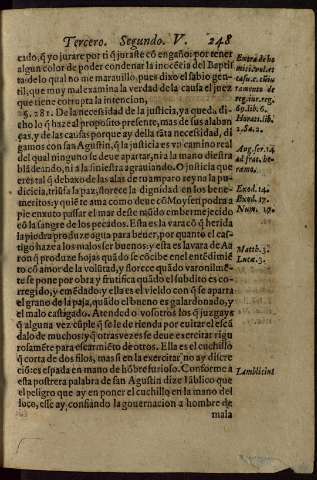 Tercero. Segundo. V. 248
cado, q̃ yo jurare por ti q̃ juraste cõ engaño: por tener
algun color de poder condenar la inocẽcia del Baptis
ta: de lo qual no me marauillo, pues dixo el sabio gen-
til, que muy mal examina la verdad de la causa el juez
que tiene corrupta la intencion.
§. 281. De la necessidad de la justicia, ya queda di-
cho lo q̃ haze al proposito presente, mas de sus alaban
ças, y de las causas porque ay della tãta necessidad, di
gamos con san Agustin, q̃ la justicia es vn camino real
del qual ninguno se deue apartar, ni a la mano diestra
blãdeando, ni a la siniestra agrauiando. O justicia que
eres tal q̃ debaxo de las alas de tu amparo rey na la pu-
dicicia, triũfa la paz, florece la dignidad en los bene-
meritos: y quiẽ te ama como deue cõ Moysen podra a
pie enxuto passar el mar deste mũdo embermejecido
cõ la sangre de los pecados. Esta es la vara cõ q̃ herida
la piedra produze agua para beuer, por quanto el cas-
tigo haze a los malos ser buenos: y esta es la vara de Aa
ron q̃ produze hojas quãdo se cõcibe en el entẽdimiẽ
to cõ amor de la volũtad, y florece quãdo varonilmẽ-
te se pone por obra y frutifica quãdo el subdito es co-
rregido, y emẽdado: y ella es el vieldo con q̃ se aparta
el grano de la paja, quãdo el bueno es galardonado, y
el malo castigado. Atended o vosotros los q̃ juzgays
q̃ alguna vez cũple q̃ se le de rienda por euitar el escã
dalo de muchos: y q̃ otras vezes se deue exercitar rigu
rosamẽte para escarmiẽto de otros. Ella es el cuchillo
q̃ corta de dos filos, mas si en la exercitar no ay discre
ciõ: es espada en mano de hõbre furioso. Conforme a
esta postrera palabra de san Agustin dize Iãblico que
el peligro que ay en poner el cuchillo en la mano del
loco, esse ay, confiando la gouernacion a hombre de
mala
Entrã de ho
casu. c. cum
iuramento de
reg. iur. reg.
69. lib. 6.
Horati. lib.
2. Sa. 2.
Aug. ser. 14
ad frat. he-
remo.
Exod. 14.
Exod. 17.
Num. 17.
Matth. 3.
Lucæ. 3.
Iamblicius